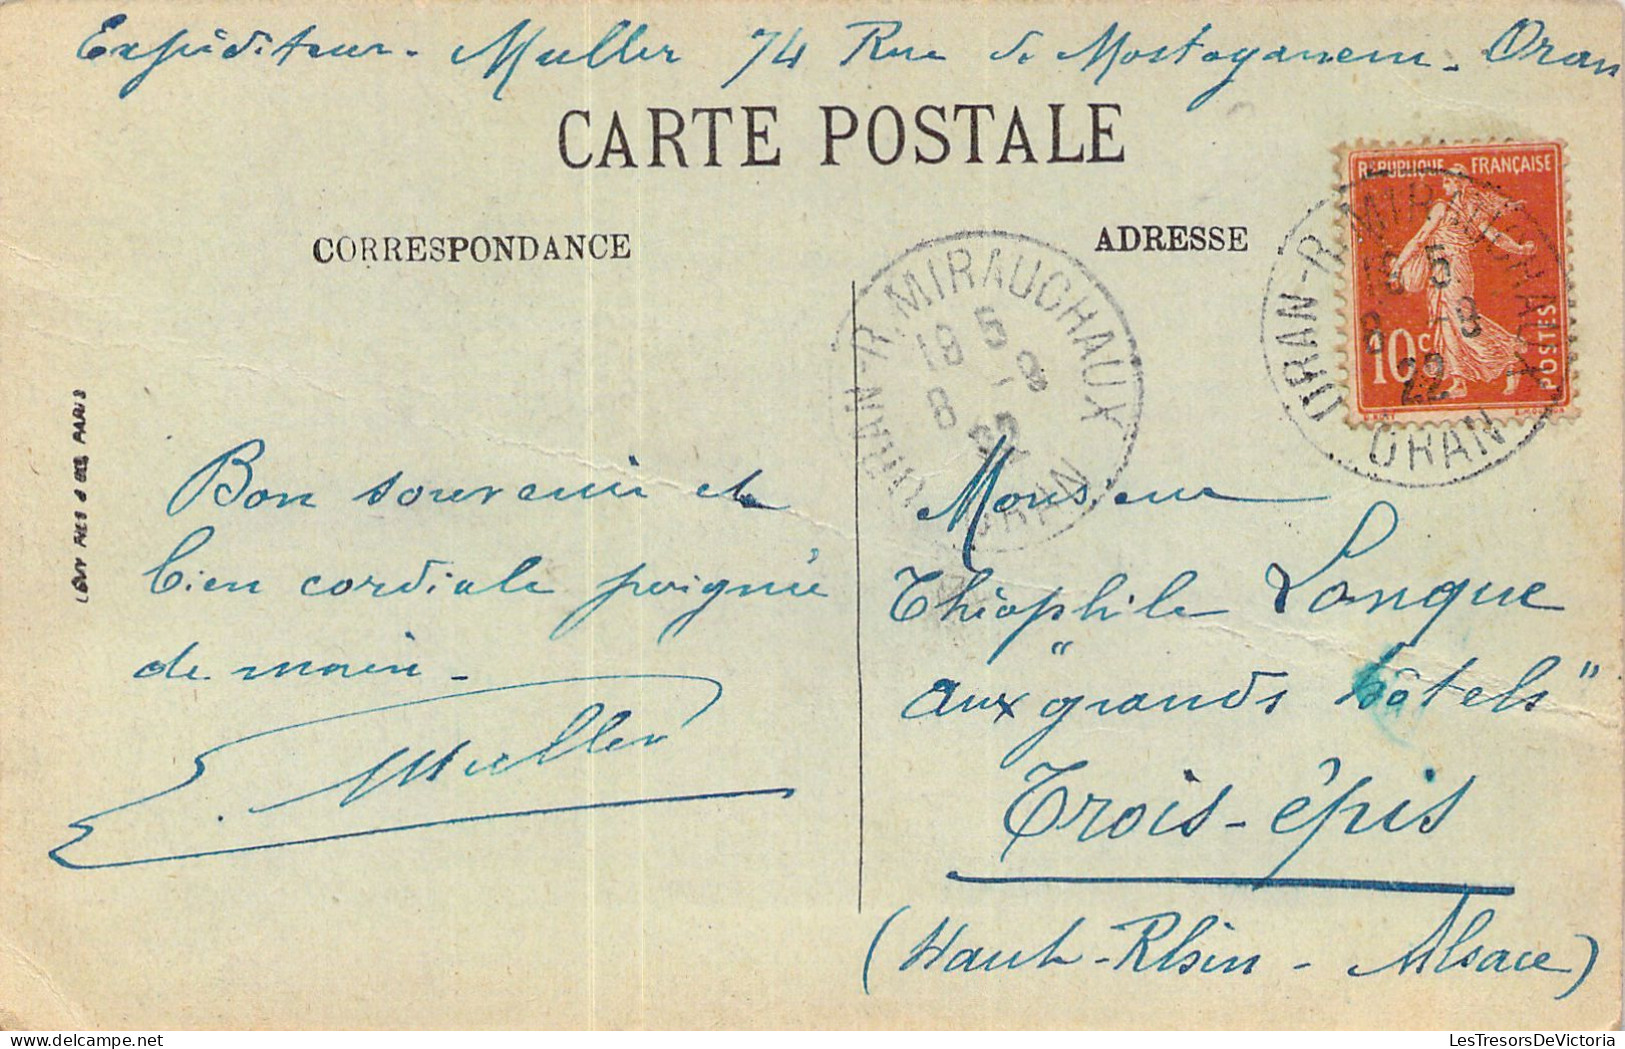 Expéditeur - Muller 74 Rue de Mostaganem - Oran
CARTE POSTALE
CORRESPONDANCE
ADRESSE
RÉPUBLIQUE FRANÇAISE
10c
POSTES
ORAN-R.MIRAUCHAUX
18 5
8 -8
22
ORAN
ORAN-R.MIRAUCHAUX
18 5
8 -8
22
ORAN
LÉVY FILS & Cie, PARIS
Bon souvenir et
bien cordiale poignée
de main -
E. Muller
Monsieur
Théophile Lonque
aux "grands hôtels"
Trois-épis
(Haut-Rhin - Alsace)
LesTresorsDeVictoria.com